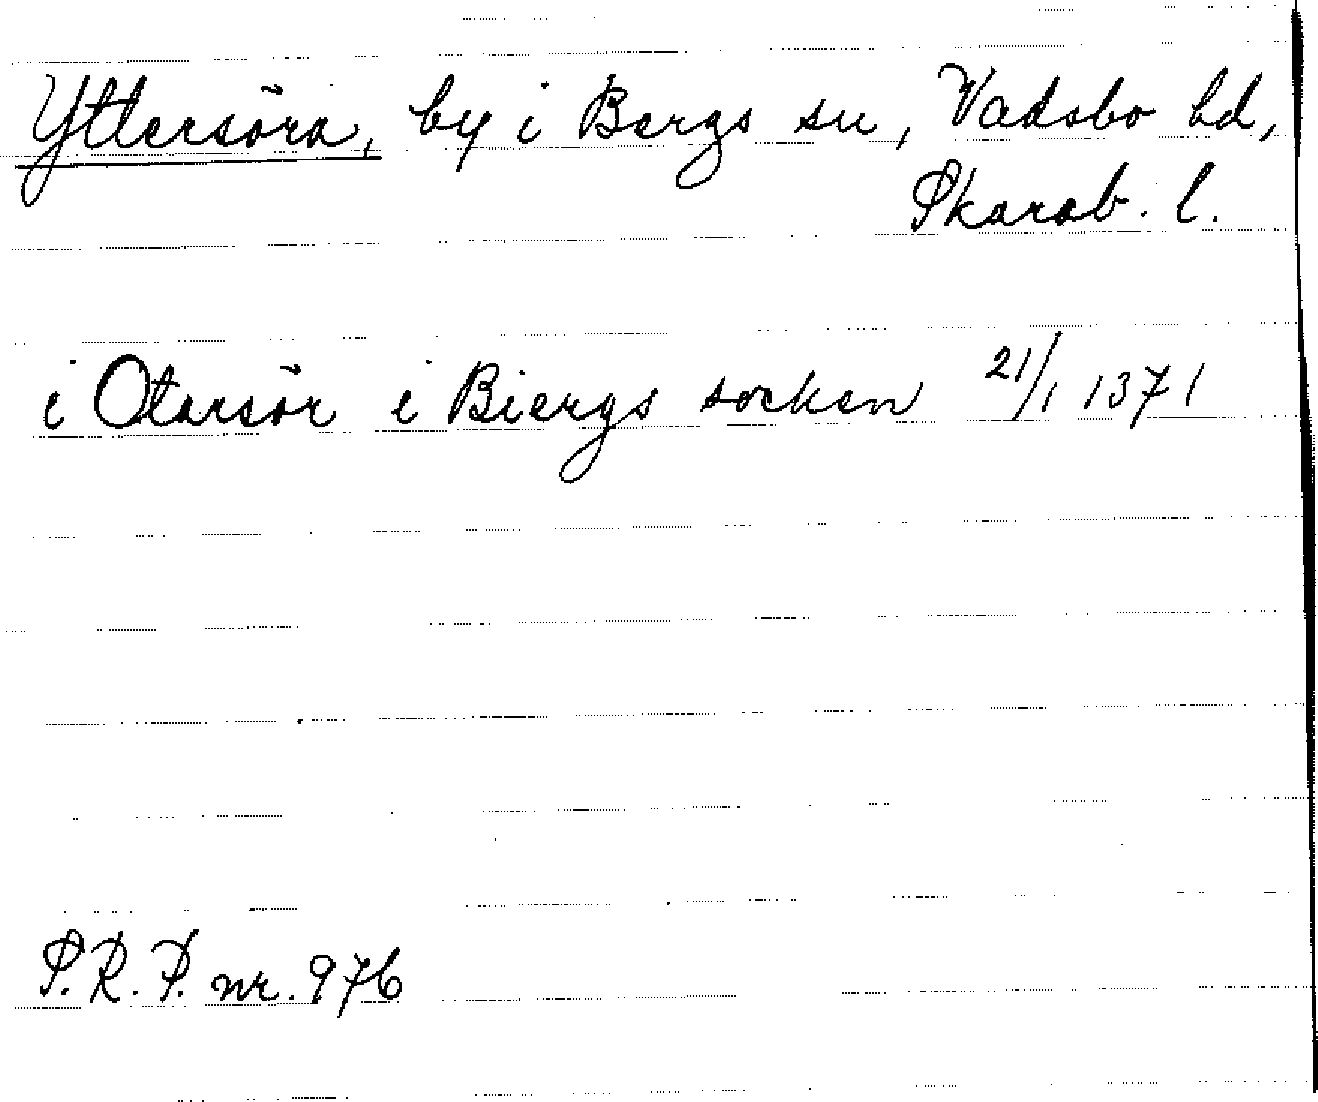 Yttersöra, by i Bergs sn, Vadsbo hd,
Skarab. l.
i Otarsör i Biergs socken 21/1 1371
S.R.P. nr. 976